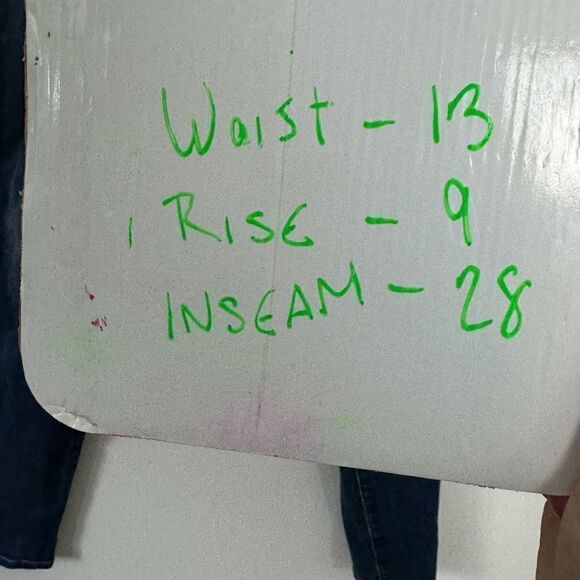 Waist - 13
RISE - 9
INSEAM - 28